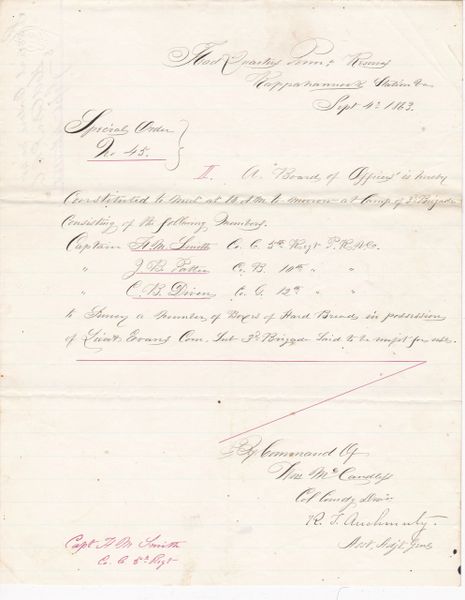 Head Quarters Penna Reserves
Rappahannock Station Va
Sept 4th 1863.
Special Order
No 45.
II A "Board of Officers" is hereby
Constituted to meet at 10 A.M. to-morrow at Camp of 3d Brigade
Consisting of the following Members.
Captain H. M. Smith Co. C. 5th Regt P. R. V. C.
" J. B. Co. B. 10th " "
" C. B. Diven Co. G. 12th " "
to Survey a Number of Boxes of Hard Bread in possession
of Lieut Evans Com. Sub 3d Brigade Said to be unfit for use.
By Command Of
Wm McCandless
Col Comdg Divn
R. T. Auchmuty.
Asst. Adjt. Genl
Capt H M Smith
Co. C 5th Regt